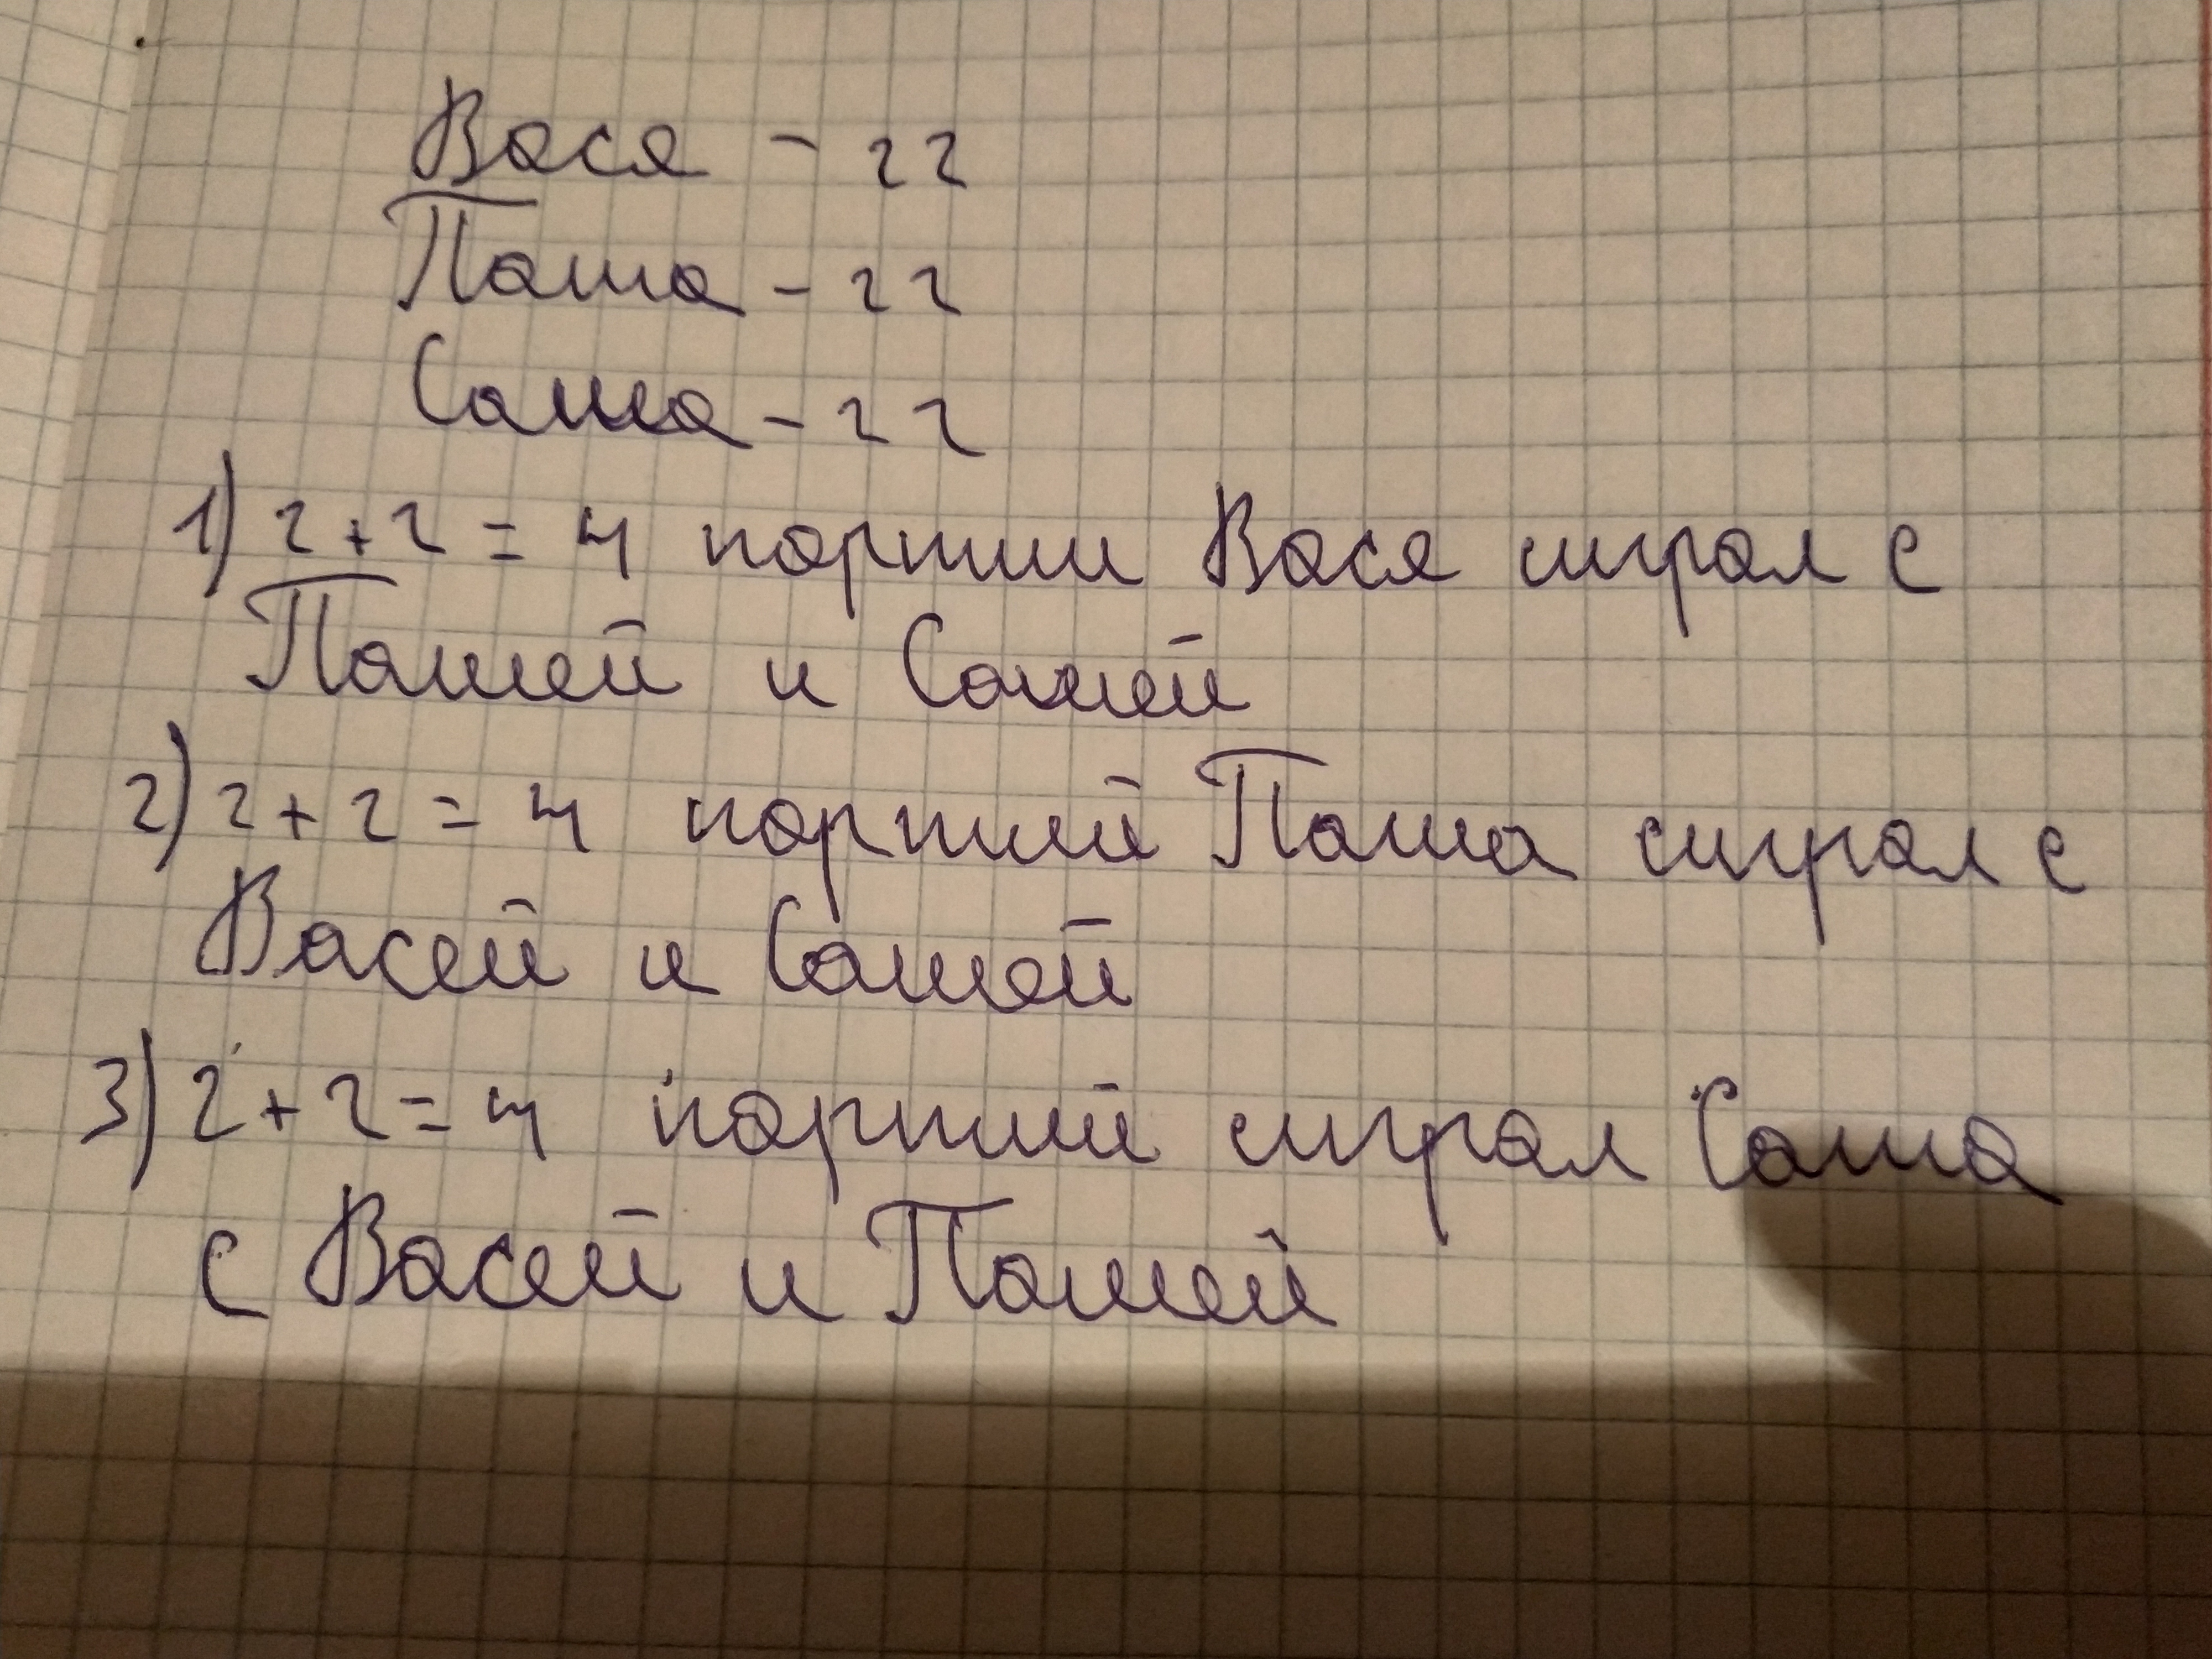 Вася - 22
Паша - 22
Саша - 22
1) 2+2 = 4 портии Вася сиграл с
Пашей и Сашей
2) 2+2 = 4 портий Паша сиграл с
Васей и Сашей
3) 2+2=4 портий сиграл Саша
с Васей и Пашей